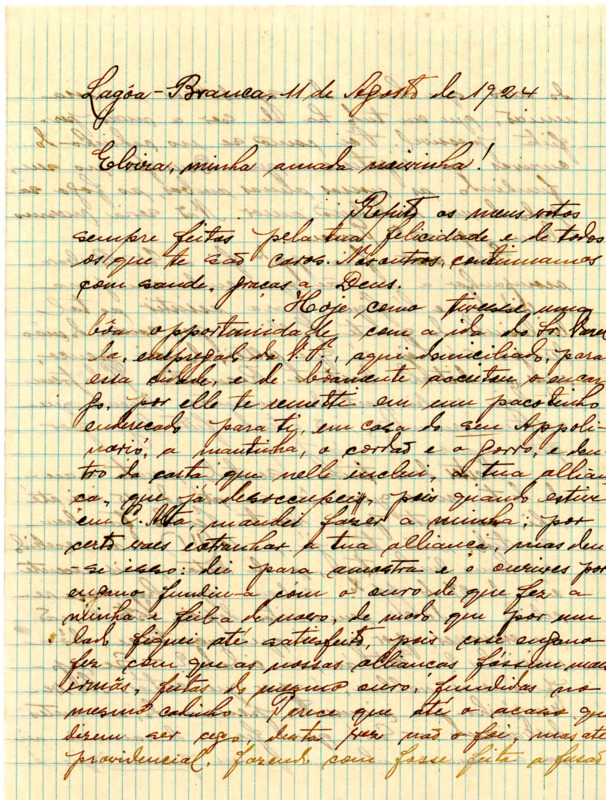 Lagôa-Branca, 11 de Agosto de 1924
Elvira, minha amada noivinha!
Repito os meus votos
sempre feitos pela tua felicidade e de todos
os que te são caros. Nós outros, continuamos
com saude, graças a Deus.
Hoje como tivesse uma
bôa opportunidade, com a ida do Sr.
la, empregado da V. F., aqui domiciliado, para
essa cidade, e de bôamente acceitou o encar
go, por elle te remetti em um pacotinho
endereçado para ti, em casa do seu Appoli-
nario, a mantinha, o cordão e o gorro, e den
tro da caixa, que nelle inclui, a tua allian
ça, que já desoccupei, pois quando estive
em C. Alta mandei fazer a minha; por
certo vaes extranhar a tua alliança, mas deu
-se isso: dei para amostra e o ourives por
engano fundiu-a com o ouro de que fez a
minha e fel-a de novo, de modo que por um
lado fiquei até satisfeito, pois esse engano
fez com que as nossas allianças fôssem mais
irmãs, feitas do mesmo ouro, fundidas no
mesmo cadinho. Parece que até o acaso que
dizem ser cego, desta vez não o foi, mas até
providencial, fazendo com fosse feita a fusão